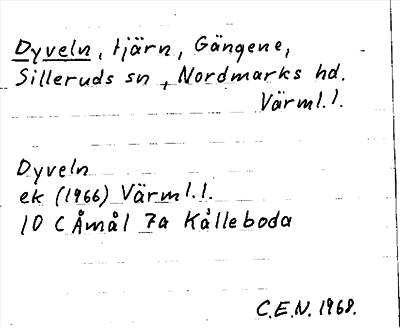 Dyveln, tjärn, Gängene,
Silleruds sn, Nordmarks hd.
Värml. l.
Dyveln
ek (1966) Värml. l.
10 C Åmål 7a Kålleboda
C.E.N. 1968.